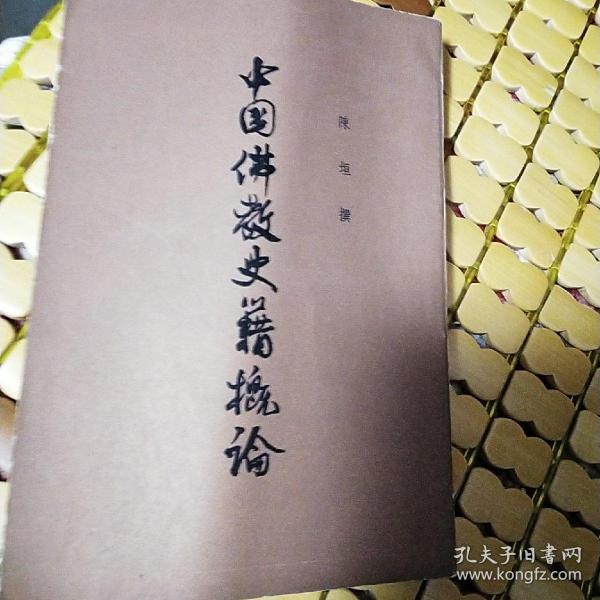 陳垣撰
中国佛教史籍概论
孔夫子旧书网
www.kongfz.com